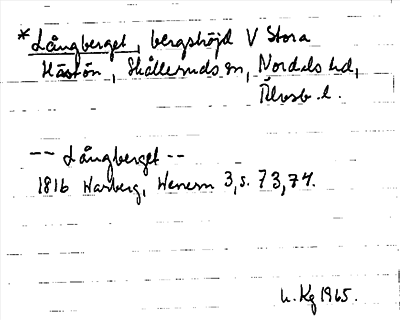 *Långberget, bergshöjd V Stora
Hästön, Skålleruds sn, Nordals hd,
Älvsb. l.
-- Långberget --
1816 Warberg, Wenern 3, s. 73, 74.
U. Kg 1965.